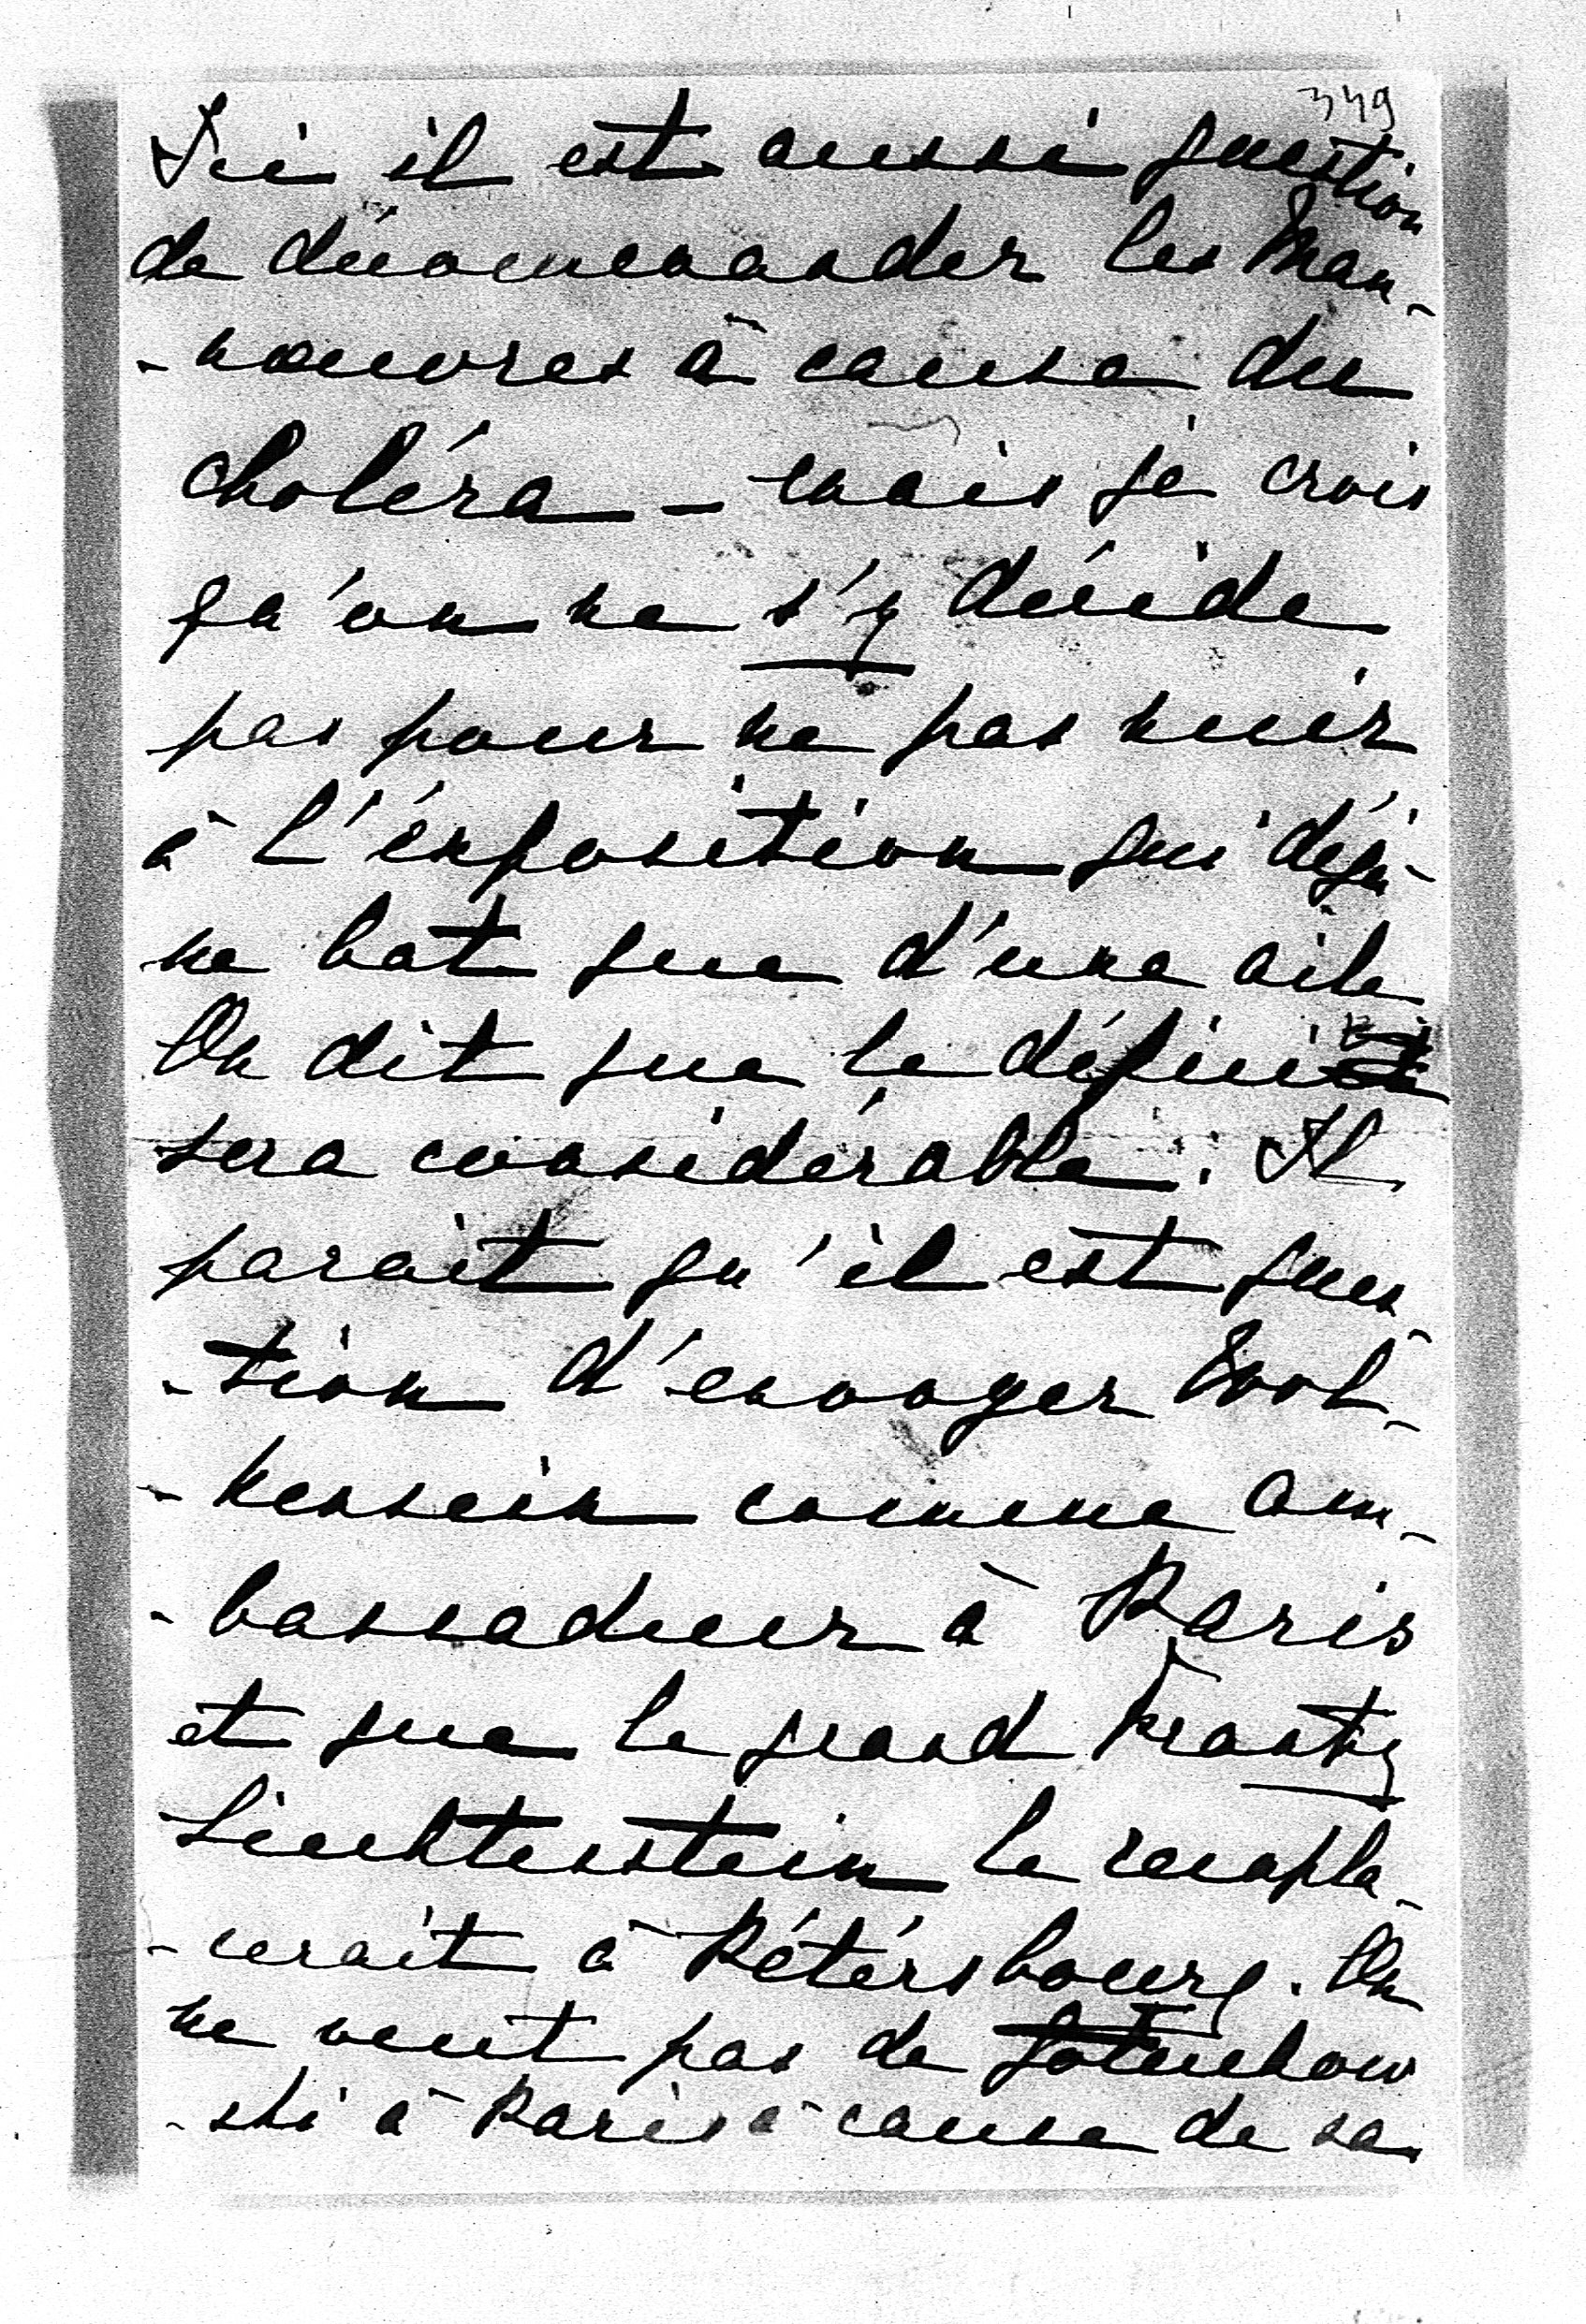 349
Ici il est aussi question
de décommander les Man-
-nœuvres à cause du
choléra - mais je crois
qu'on ne s'y décide
pas pour ne pas nuir
à l'éxposition qui déjà
ne bat que d'une aile
On dit que le déficit
sera considérable. Il
parait qu'il est ques-
-tion d'envoyer Wol-
-kenstein comme am-
-bassadeur à Paris
et que le grand Franty
Liechtenstein le rempla-
-cerait à Pétérsbourg. On
ne veut pas de Goluchow
-ski à Paris à cause de sa